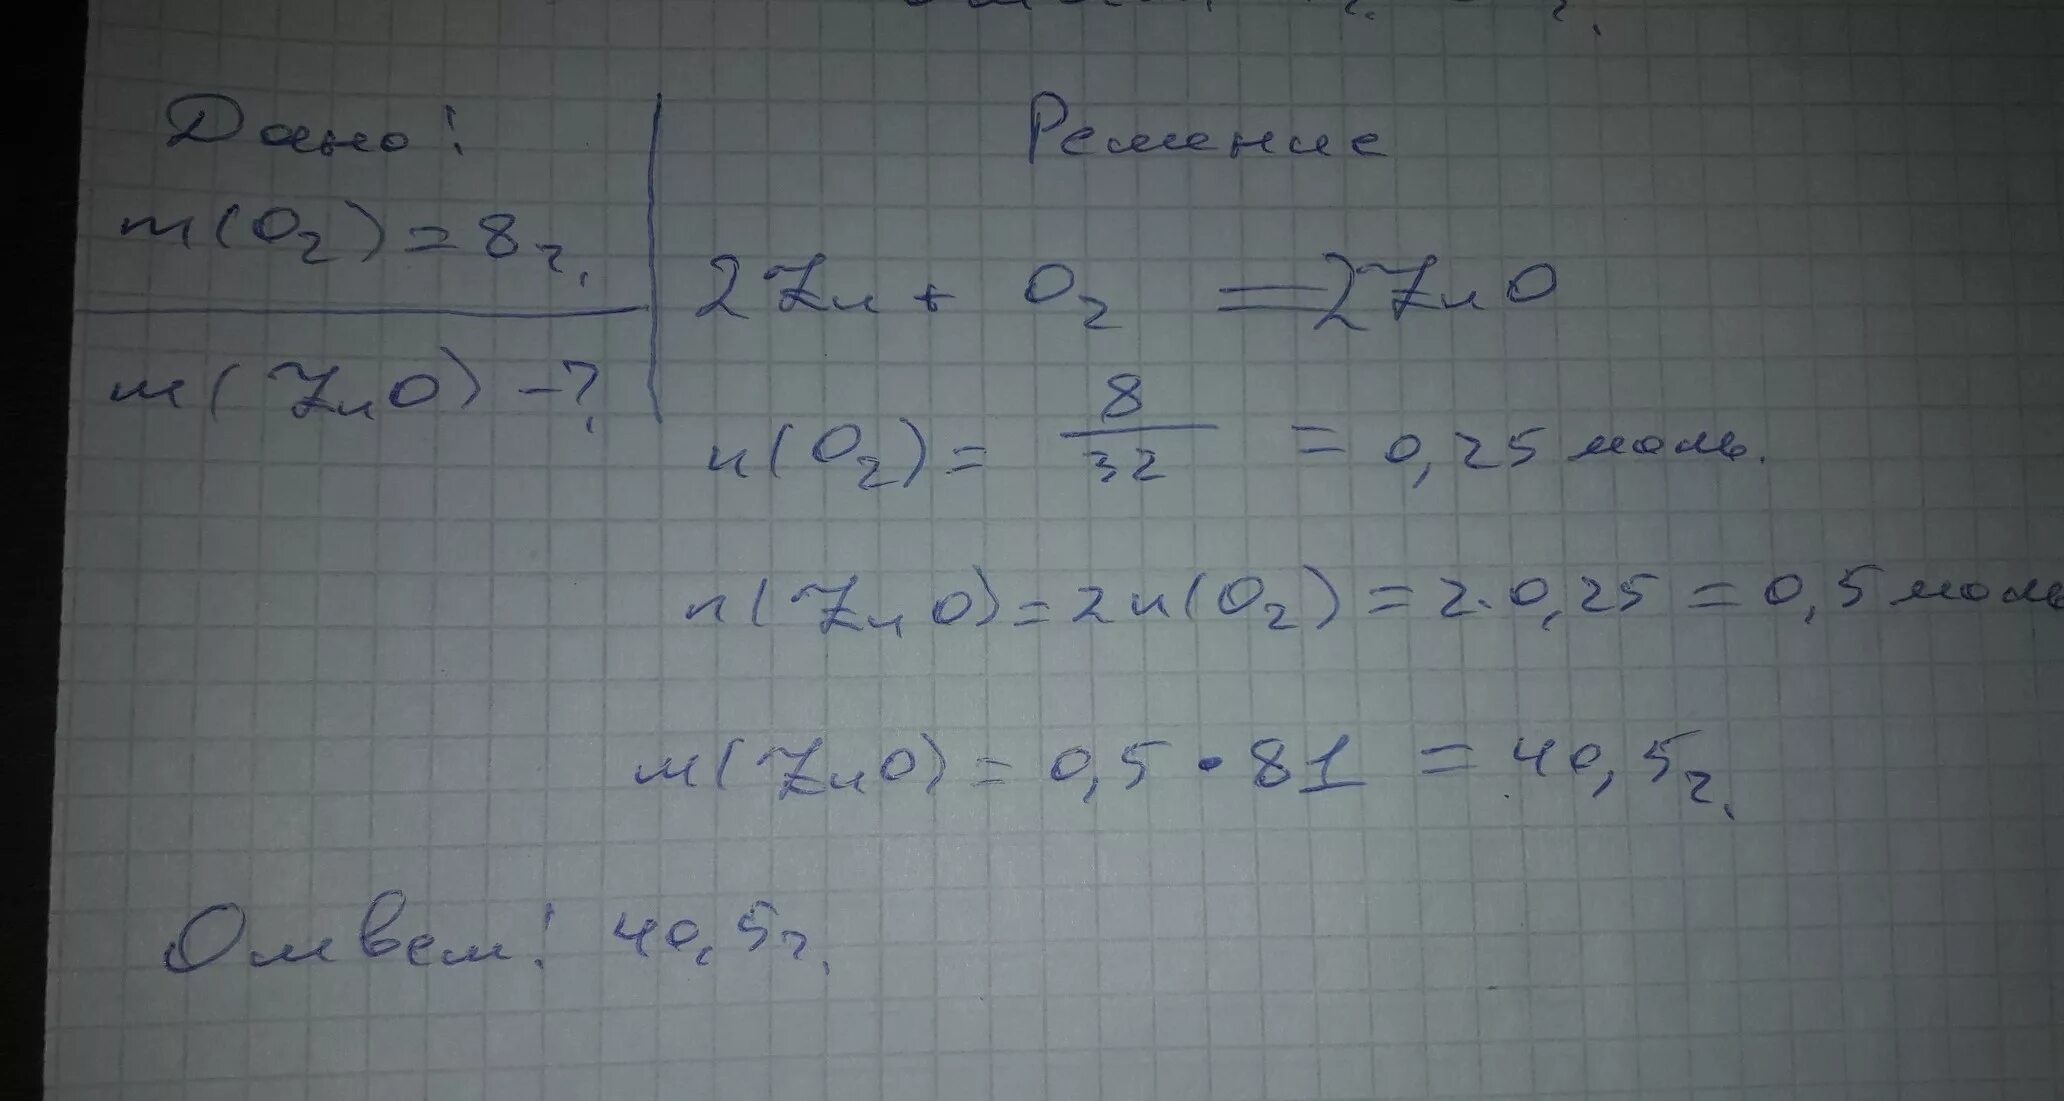 Дано:
m(O2) = 8г.
m(ZnO) - ?
Решение
2Zn + O2 = 2ZnO
n(O2) = 8/32 = 0,25 моль.
n(ZnO) = 2n(O2) = 2·0,25 = 0,5 моль
m(ZnO) = 0,5 · 81 = 40,5г.
Ответ: 40,5г.